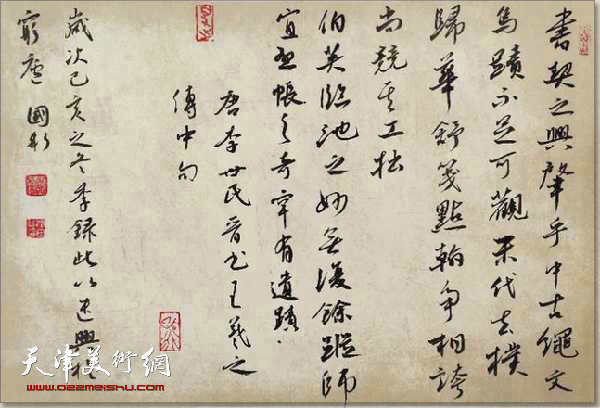 書契之興肇乎中古繩文
鳥蹟不足可觀末代去樸
歸華舒箋點翰爭相誇
尚競其工拙
伯英臨池之妙無復餘蹤師
宜懸帳之奇罕有遺蹟
唐李世民晉書王羲之
傳中句
歲次己亥之冬季錄此以興於
窮廬 國
天津美術網
www.022meishu.com